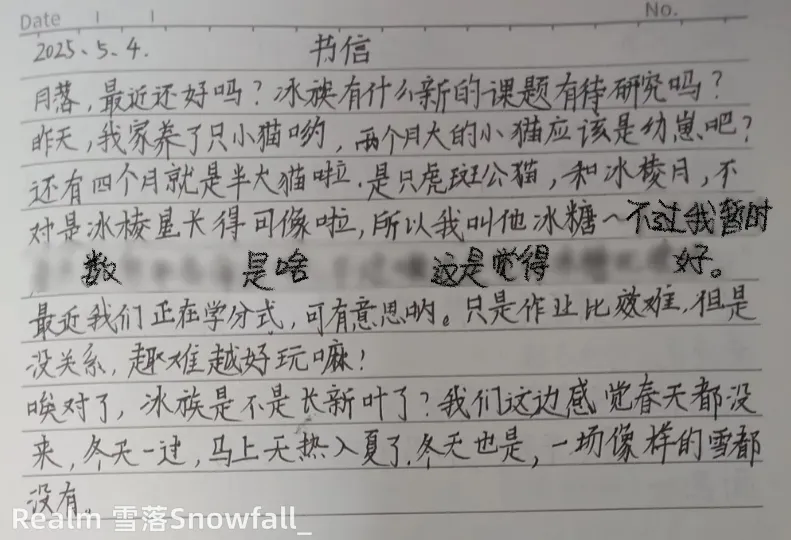 Date No.
2025.5.4. 书信
月落,最近还好吗?冰族有什么新的课题有待研究吗?
昨天,我家养了只小猫哟,两个月大的小猫应该是幼崽吧?
还有四个月就是半大猫啦.是只虎斑公猫,和冰棱月,不
对是冰棱星长得可像啦,所以我叫他冰糖~不过我暂时
数 是啥 这是觉得 好。
最近我们正在学分式,可有意思呐。只是作业比较难,但是
没关系,越难越好玩嘛!
唉对了,冰族是不是长新叶了?我们这边感觉春天都没
来,冬天一过,马上天热入夏了.冬天也是,一场像样的雪都
没有。
Realm 雪落Snowfall_